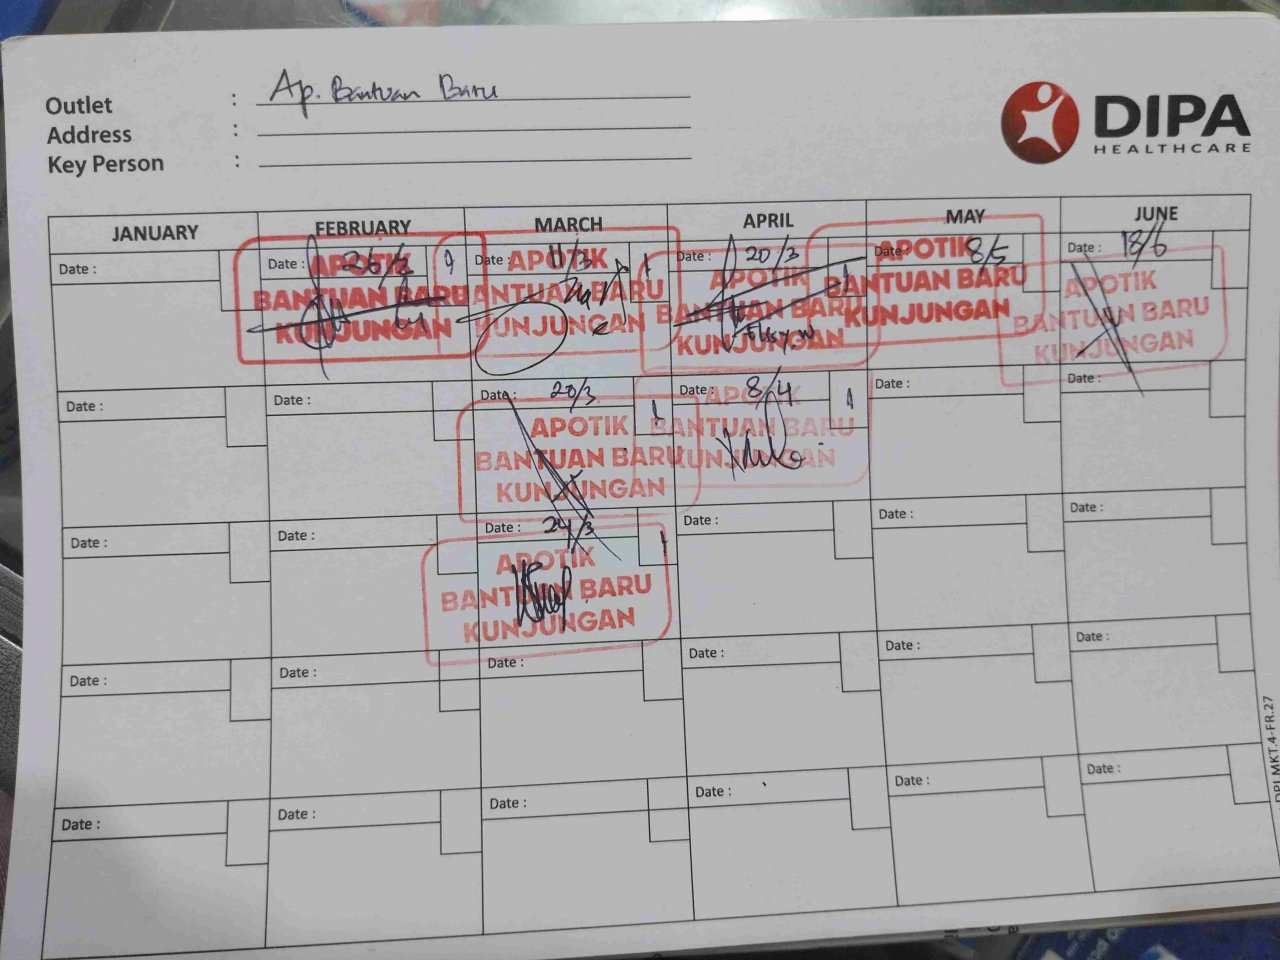 Outlet : Ap. Bantuan Baru
Address :
Key Person :
DIPA
HEALTHCARE
JANUARY FEBRUARY MARCH APRIL MAY JUNE
Date : Date : 26/2 Date : 11/3 Date : 20/3 Date : 8/5 Date : 18/6
APOTIK APOTIK APOTIK APOTIK APOTIK
BANTUAN BARU BANTUAN BARU BANTUAN BARU BANTUAN BARU BANTUAN BARU
KUNJUNGAN KUNJUNGAN KUNJUNGAN KUNJUNGAN KUNJUNGAN
Date : Date : Date : 20/3 Date : 8/4 Date : Date :
APOTIK APOTIK
BANTUAN BARU BANTUAN BARU
KUNJUNGAN KUNJUNGAN
Date : Date : Date : 24/3 Date : Date : Date :
APOTIK
BANTUAN BARU
KUNJUNGAN
Date : Date : Date : Date : Date : Date :
Date : Date : Date : Date : Date : Date :
DPI.MKT.4-FR.27